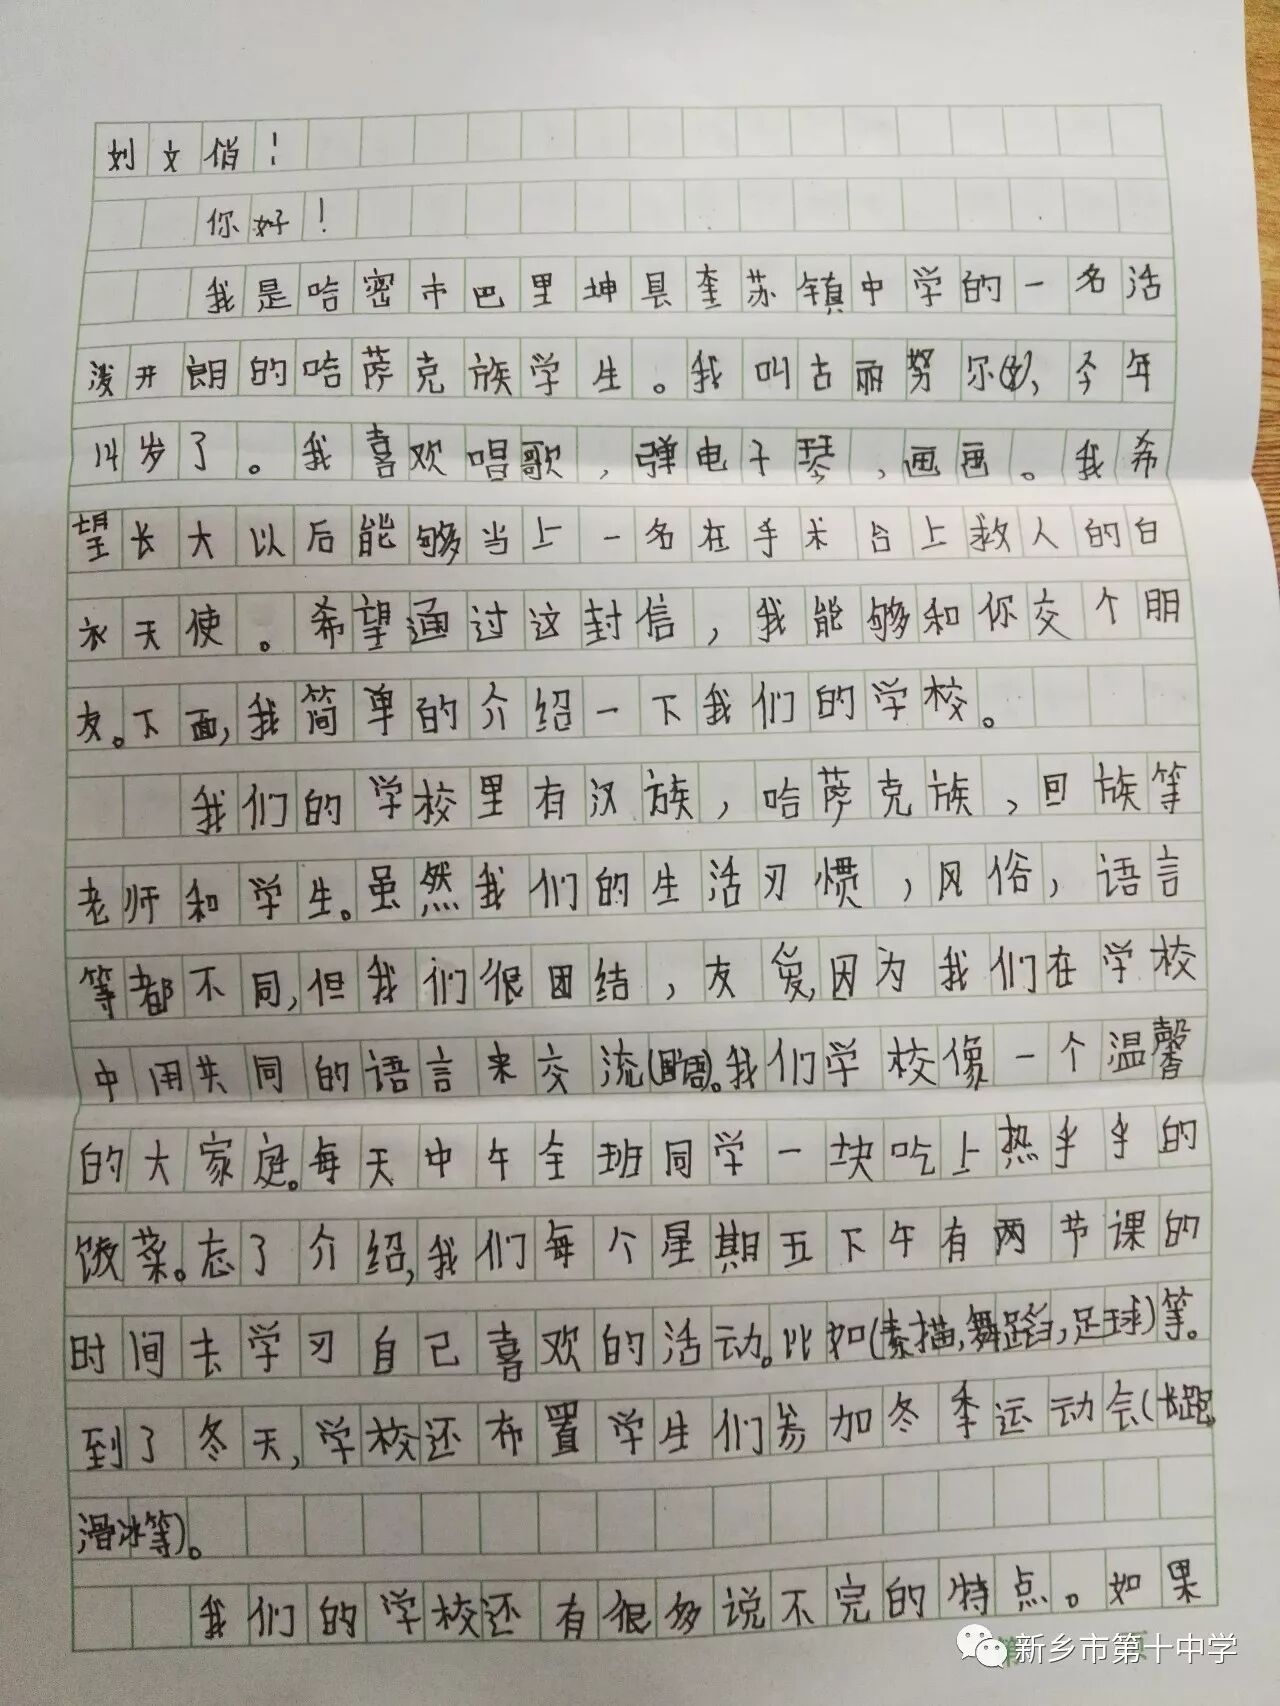 刘文俏！
你好！
我是哈密市巴里坤县奎苏镇中学的一名活
泼开朗的哈萨克族学生。我叫古丽努尔(女)，今年
14岁了。我喜欢唱歌，弹电子琴，画画。我希
望长大以后能够当上一名在手术台上救人的白
衣天使。希望通过这封信，我能够和你交个朋
友。下面，我简单的介绍一下我们的学校。
我们的学校里有汉族，哈萨克族，回族等
老师和学生。虽然我们的生活习惯，风俗，语言
等都不同，但我们很团结，友爱，因为我们在学校
中用共同的语言来交流(国语)。我们学校像一个温馨
的大家庭。每天中午全班同学一块吃上热乎乎的
饭菜。忘了介绍，我们每个星期五下午有两节课的
时间去学习自己喜欢的活动。比如(素描，舞蹈，足球)等。
到了冬天，学校还布置学生们参加冬季运动会(长跑，
滑冰等)。
我们的学校还有很多说不完的特点。如果
新乡市第十中学